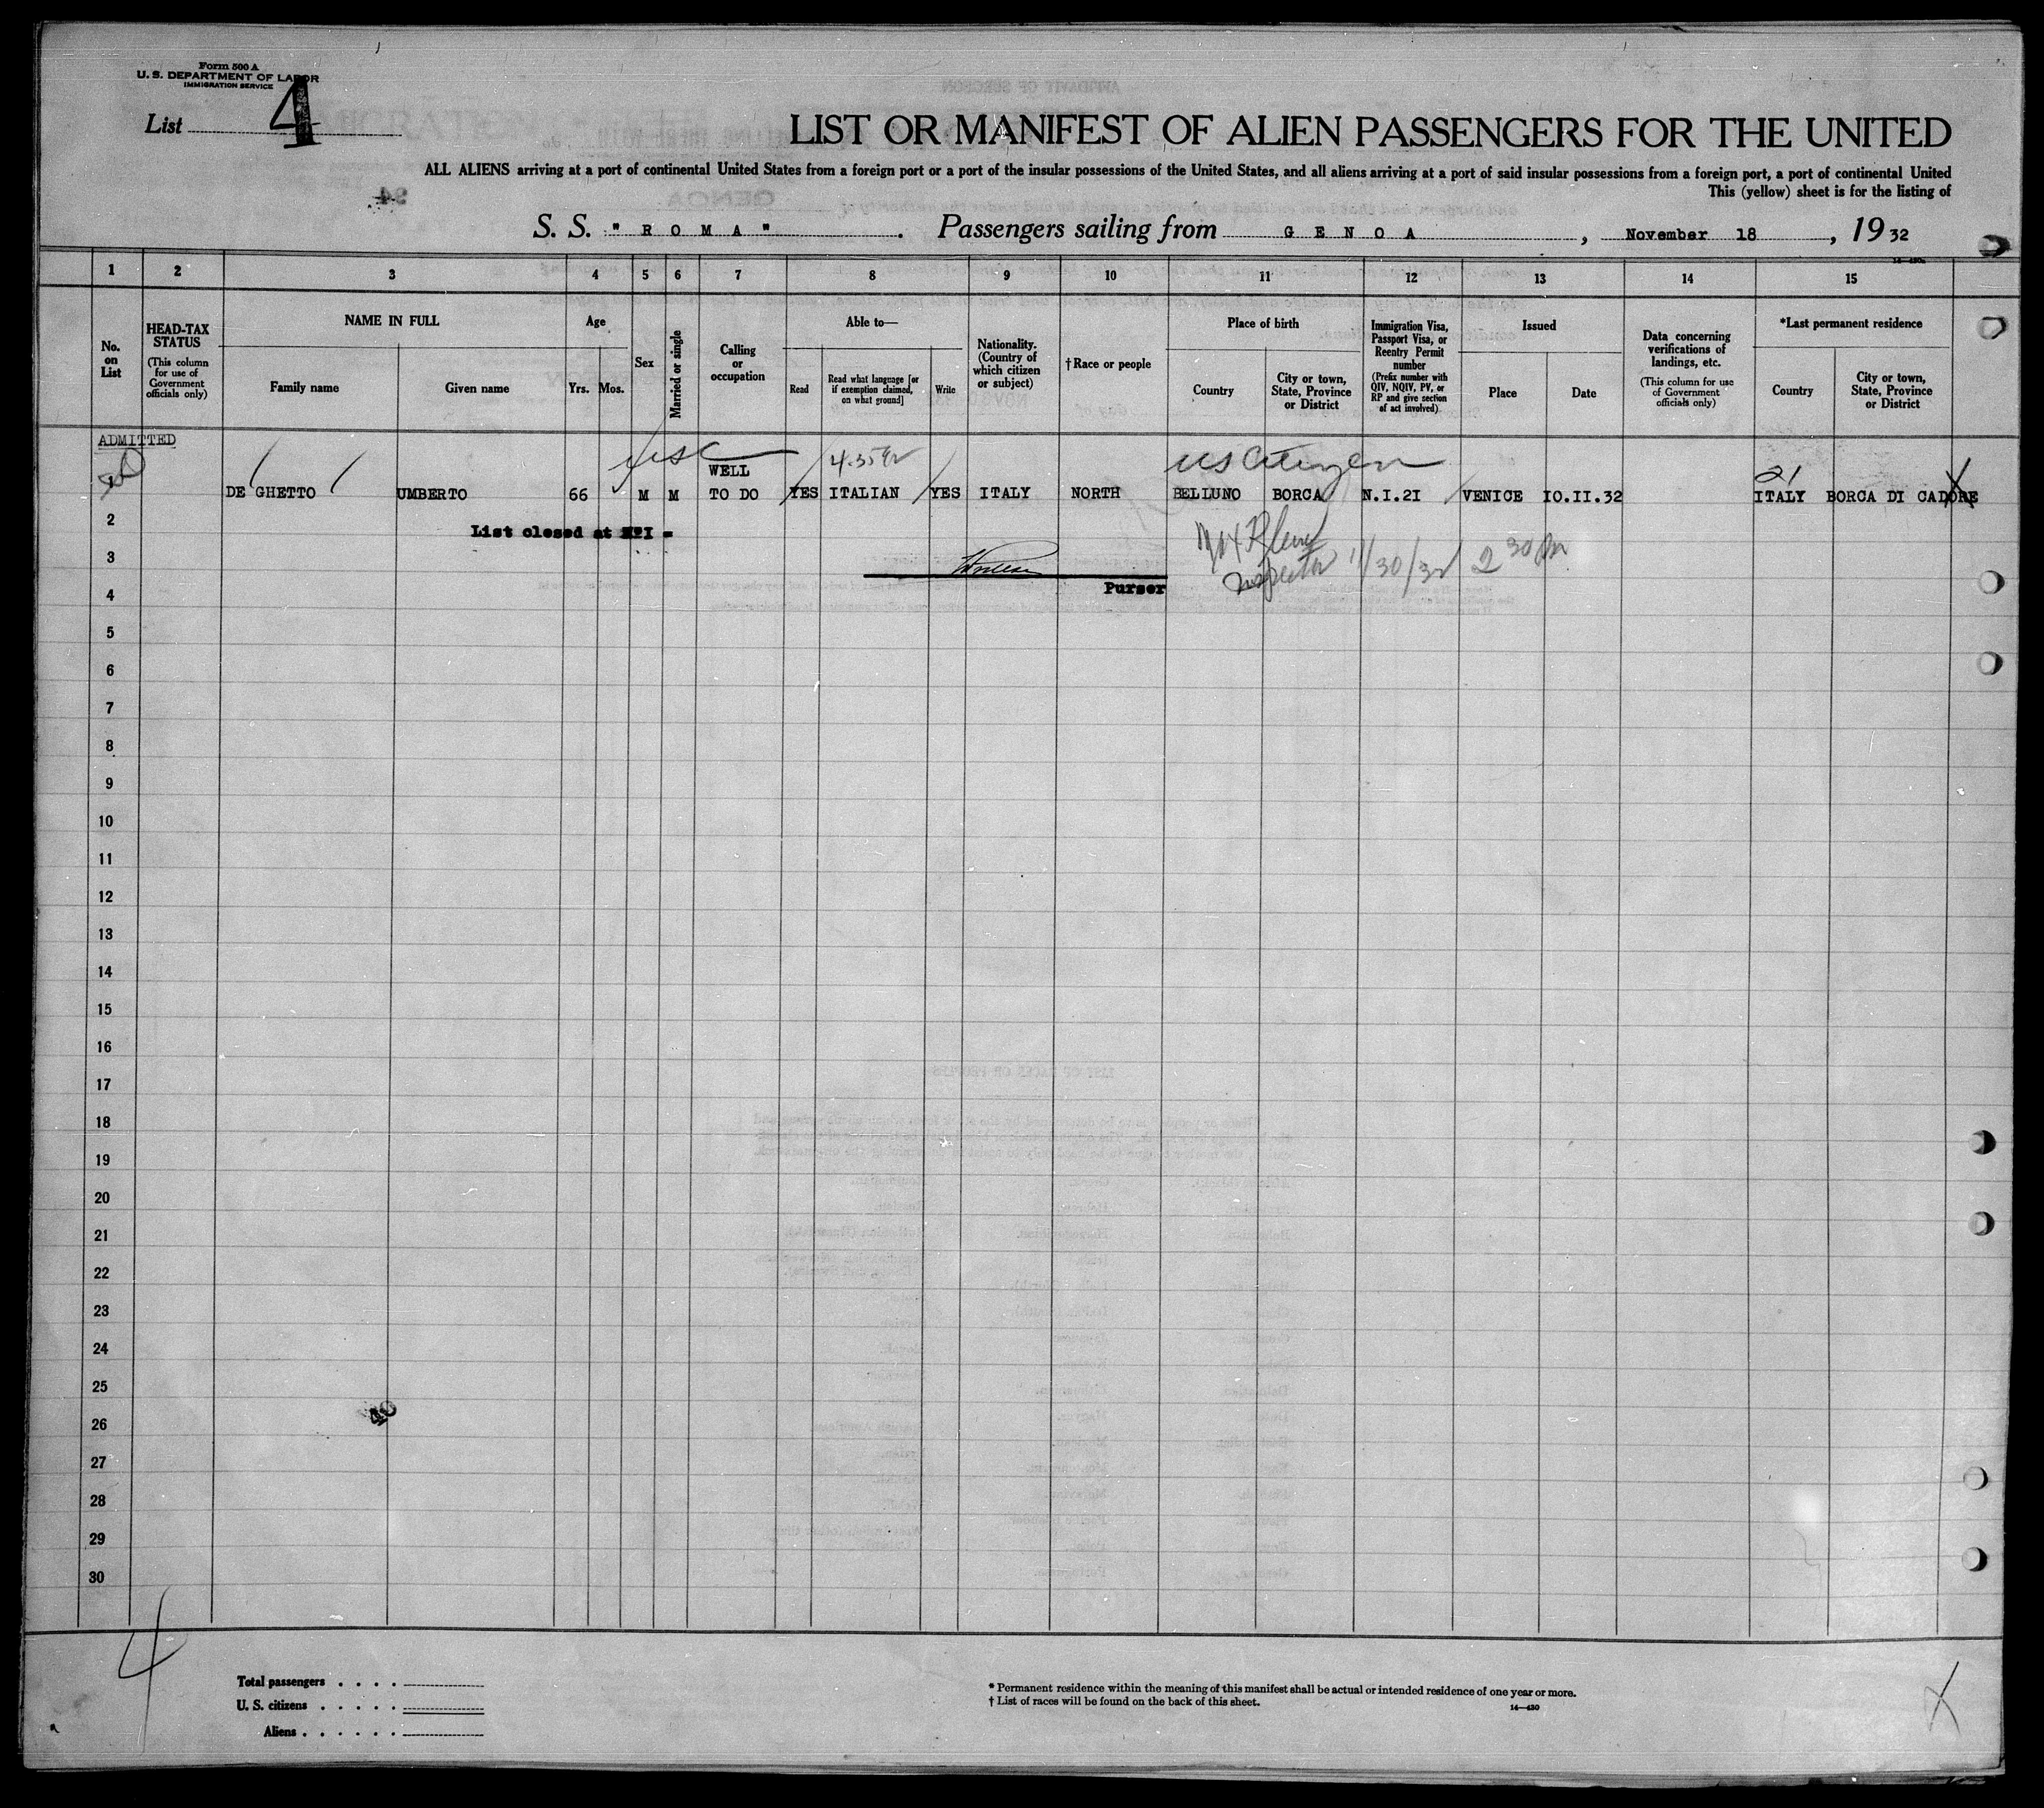 Form 500 A
U. S. DEPARTMENT OF LABOR
IMMIGRATION SERVICE
List 4
LIST OR MANIFEST OF ALIEN PASSENGERS FOR THE UNITED
ALL ALIENS arriving at a port of continental United States from a foreign port or a port of the insular possessions of the United States, and all aliens arriving at a port of said insular possessions from a foreign port, a port of continental United
This (yellow) sheet is for the listing of
S. S. "ROMA". Passengers sailing from GENOA, November 18, 1932
1 2 3 4 5 6 7 8 9 10 11 12 13 14 15
No. on List
HEAD-TAX STATUS
(This column for use of Government officials only)
NAME IN FULL
Family name
Given name
Age
Yrs. Mos.
Sex
Married or single
Calling or occupation
Able to—
Read
Read what language [or if exemption claimed, on what ground]
Write
Nationality. (Country of which citizen or subject)
† Race or people
Place of birth
Country
City or town, State, Province or District
Immigration Visa, Passport Visa, or Reentry Permit number
(Prefix number with QIV, NQIV, PV, or RP and give section of act involved)
Issued
Place
Date
Data concerning verifications of landings, etc.
(This column for use of Government officials only)
*Last permanent residence
Country
City or town, State, Province or District
ADMITTED
USC
US Citizen
21
DE GHETTO UMBERTO 66 M M WELL TO DO YES ITALIAN YES ITALY NORTH BELLUNO BORCA N.I.2I VENICE IO.II.32 ITALY BORCA DI CADORE
2
List closed at N°I -
3
Inspector 11/30/32 2 30 pm
Purser
4
5
6
7
8
9
10
11
12
13
14
15
16
17
18
19
20
21
22
23
24
25
26
40
27
28
29
30
4
Total passengers . . . .
U. S. citizens . . . . .
Aliens . . . . . .
* Permanent residence within the meaning of this manifest shall be actual or intended residence of one year or more.
† List of races will be found on the back of this sheet.
14—430
X